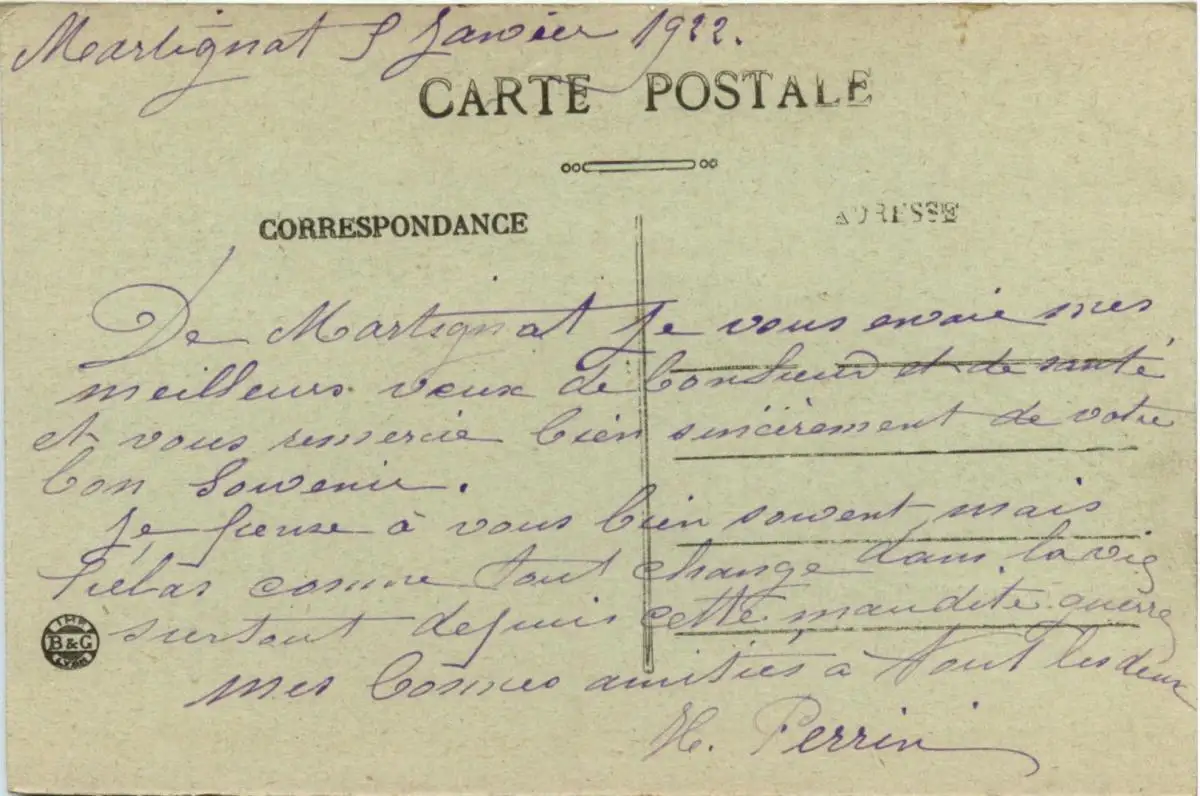 Martignat 5 Janvier 1922.
CARTE POSTALE
CORRESPONDANCE
ADRESSE
De Martignat Je vous envoie mes
meilleurs vœux de bonheur et de santé
et vous remercie bien sincèrement de votre
bon Souvenir.
Je pense à vous bien souvent mais
hélas comme tout change dans la vie
surtout depuis cette maudite guerre
mes bonnes amitiés à tout les deux
H. Perrin
IMP.
B & G
LYON